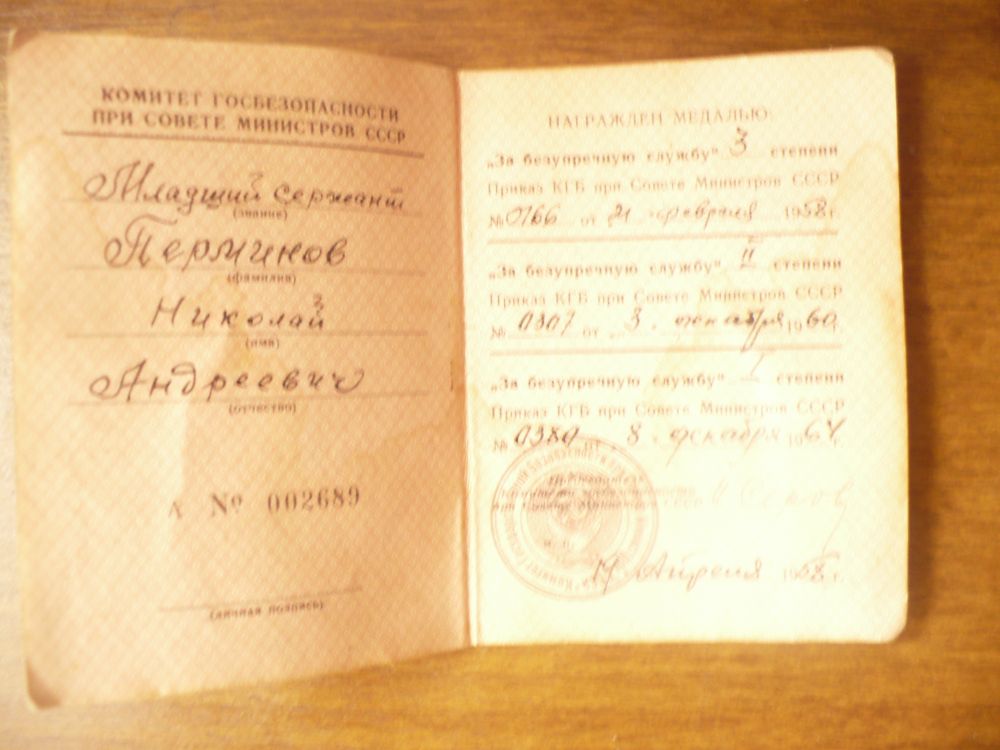 КОМИТЕТ ГОСБЕЗОПАСНОСТИ
ПРИ СОВЕТЕ МИНИСТРОВ СССР
Младший сержант
(звание)
Перминов
(фамилия)
Николай
(имя)
Андреевич
(отчество)
А № 002689
(личная подпись)
НАГРАЖДЕН МЕДАЛЬЮ:
„За безупречную службу" 3 степени
Приказ КГБ при Совете Министров СССР
№ 0166 от 21 февраля 1958 г.
„За безупречную службу" II степени
Приказ КГБ при Совете Министров СССР
№ 0307 от 3 декабря 1960 г.
„За безупречную службу" I степени
Приказ КГБ при Совете Министров СССР
№ 0380 от 8 декабря 1964 г.
Председатель
Комитета госбезопасности
при Совете Министров СССР
Апреля 1958 г.